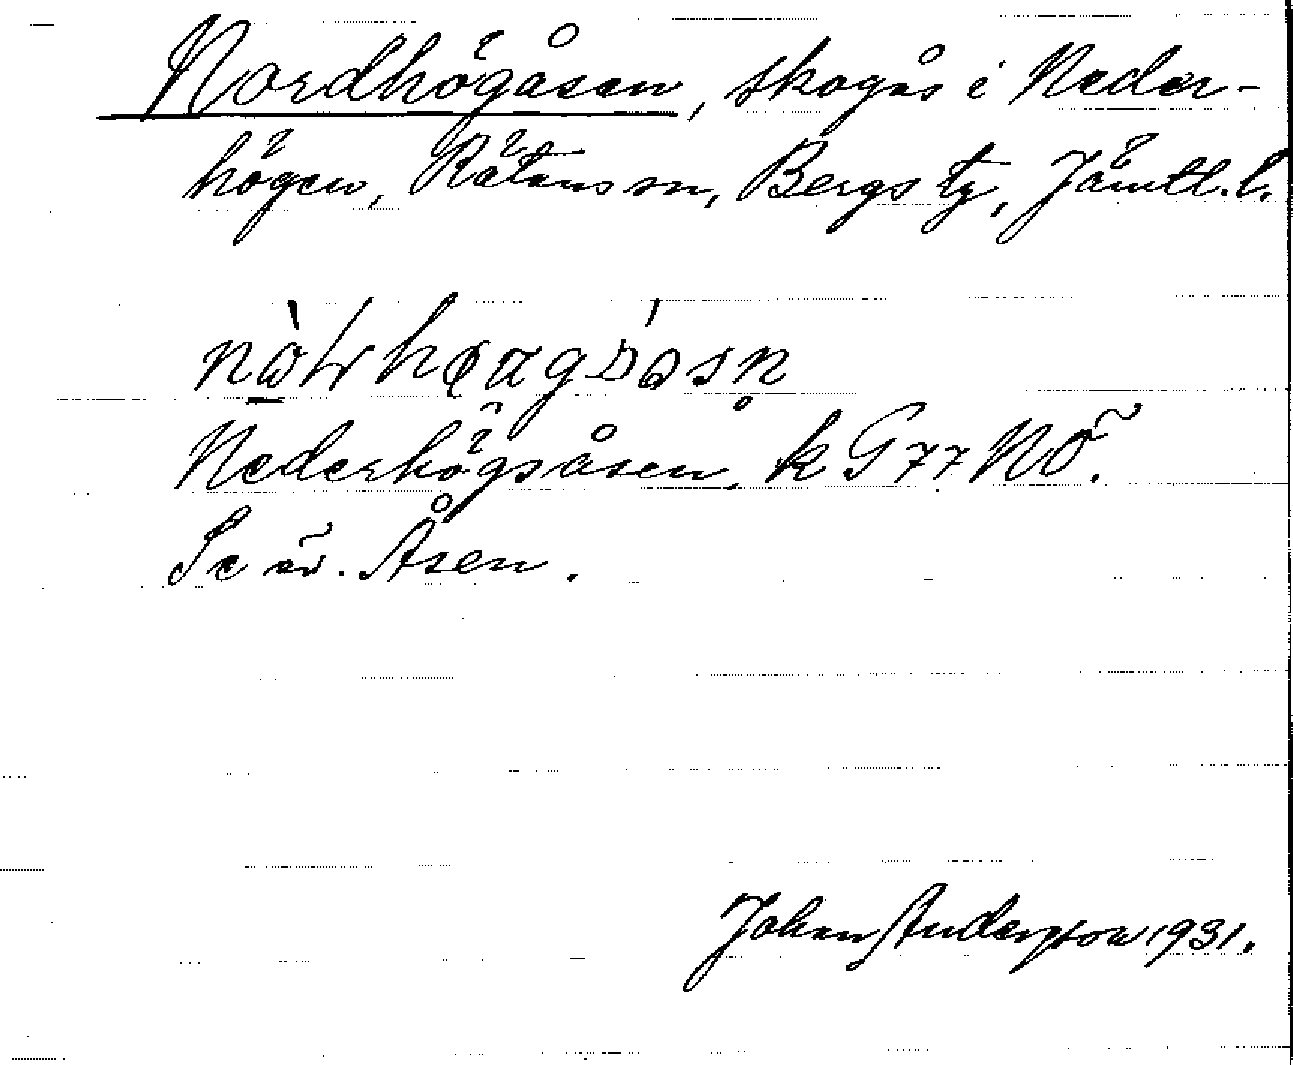 Nordhögåsen, skogås i Neder-
högen, Rätans sn, Bergs tg, Jämtl. l.
Nederhögsåsen, k G 77 NÖ.
Se äv. Åsen.
Johan Anderson 1931.